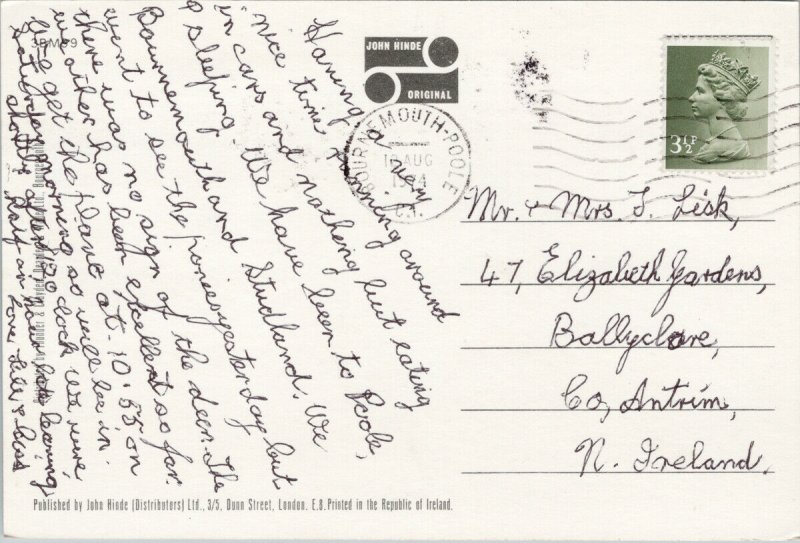 3DM99
JOHN HINDE
ORIGINAL
BOURNEMOUTH-POOLE
AUG
3½P
Having a very
nice time running around
in cars and nothing but eating
& sleeping. We have been to Poole,
Bournemouth and Studland. We
went to see the ponies yesterday but
there was no sign of the deer. The
weather has been excellent so far.
We get the plane at 10.55 on
Saturday morning so will be in
shortly after 12 o clock. We were
half an hour late leaving
Love
Mr. & Mrs. J. Lisk,
47, Elizabeth Gardens,
Ballyclare,
Co, Antrim,
N. Ireland.
Published by John Hinde (Distributors) Ltd., 3/5, Dunn Street, London. E.8. Printed in the Republic of Ireland.